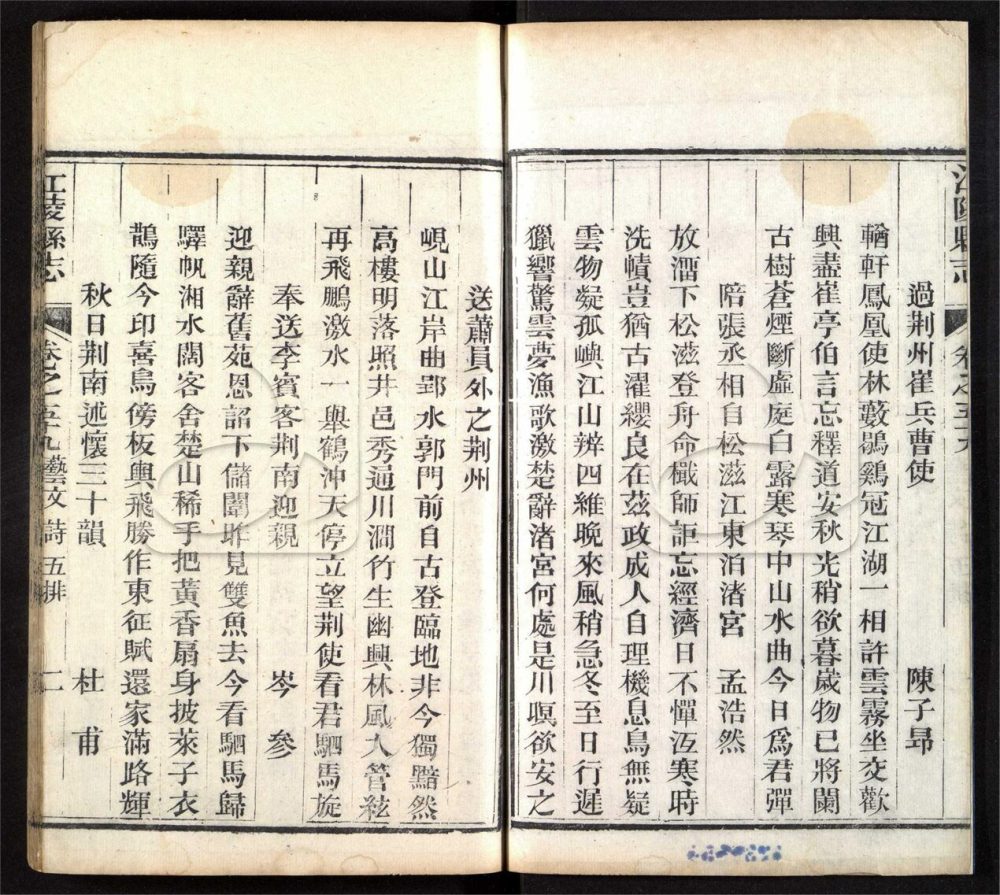 江陵縣志
卷之五十九
過荆州崔兵曹使
陳子昂
輶軒鳳凰使林藪鶡鷄冠江湖一相許雲霧坐交歡
興盡崔亭伯言忘釋道安秋光稍欲暮歲物已將闌
古樹蒼煙斷虛庭白露寒琴中山水曲今日爲君彈
陪張丞相自松滋江東泊渚宮
孟浩然
放溜下松滋登舟命檝師詎忘經濟日不憚沍寒時
洗幘豈猶古濯纓良在茲政成人自理機息鳥無疑
雲物凝孤嶼江山辨四維晚來風稍急冬至日行遲
獵響驚雲夢漁歌激楚辭渚宮何處是川暝欲安之
送蕭員外之荆州
峴山江岸曲郢水郭門前自古登臨地非今獨黯然
高樓明落照井邑秀通川澗竹生幽興林風入管絃
再飛鵬激水一舉鶴沖天佇立望荆使看君駟馬旋
奉送李賓客荆南迎親
岑參
迎親辭舊苑恩詔下儲闈昨見雙魚去今看駟馬歸
驛帆湘水闊客舍楚山稀手把黃香扇身披萊子衣
鵲隨今印喜烏傍板輿飛勝作東征賦還家滿路輝
秋日荆南述懷三十韻
杜甫
江陵縣志
卷之五十九藝文 詩 五排
二